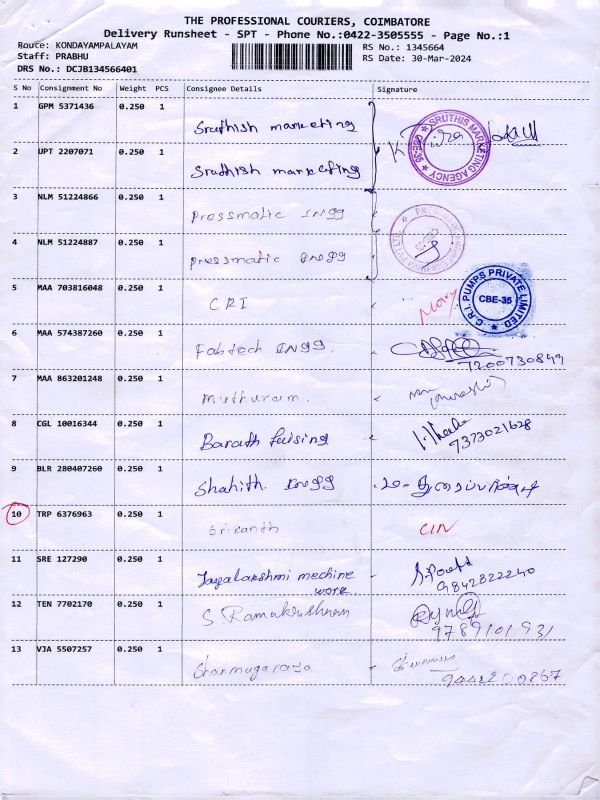 THE PROFESSIONAL COURIERS, COIMBATORE
Delivery Runsheet - SPT - Phone No.:0422-3505555 - Page No.:1
Route: KONDAYAMPALAYAM RS No.: 1345664
Staff: PRABHU RS Date: 30-Mar-2024
DRS No.: DCJB134566401
S No Consignment No Weight PCS Consignee Details Signature
1 GPM 5371436 0.250 1 Sruthish marketing
SRUTHIS MARKETING AGENCY ★ CBE-35 ★
2 UPT 2207071 0.250 1 Sruthish marketing
3 NLM 51224866 0.250 1 Pressmatic Engg
4 NLM 51224887 0.250 1 pressmatic Engg
5 MAA 703816048 0.250 1 CRI
C.R.I. PUMPS PRIVATE LIMITED ★ CBE-35
6 MAA 574387260 0.250 1 Fabtech Engg. 7200730849
7 MAA 863201248 0.250 1 muthuram.
8 CGL 10016344 0.250 1 Barath fuising 7373021628
9 BLR 280407260 0.250 1 Shahith. Engg
10 TRP 6376963 0.250 1 Srikanth CIN
11 SRE 127290 0.250 1 Jayalakshmi mechine work 9842822240
12 TEN 7702170 0.250 1 S Ramakrishnan 9789101931
13 VJA 5507257 0.250 1 Shanmugaraja 9442200867